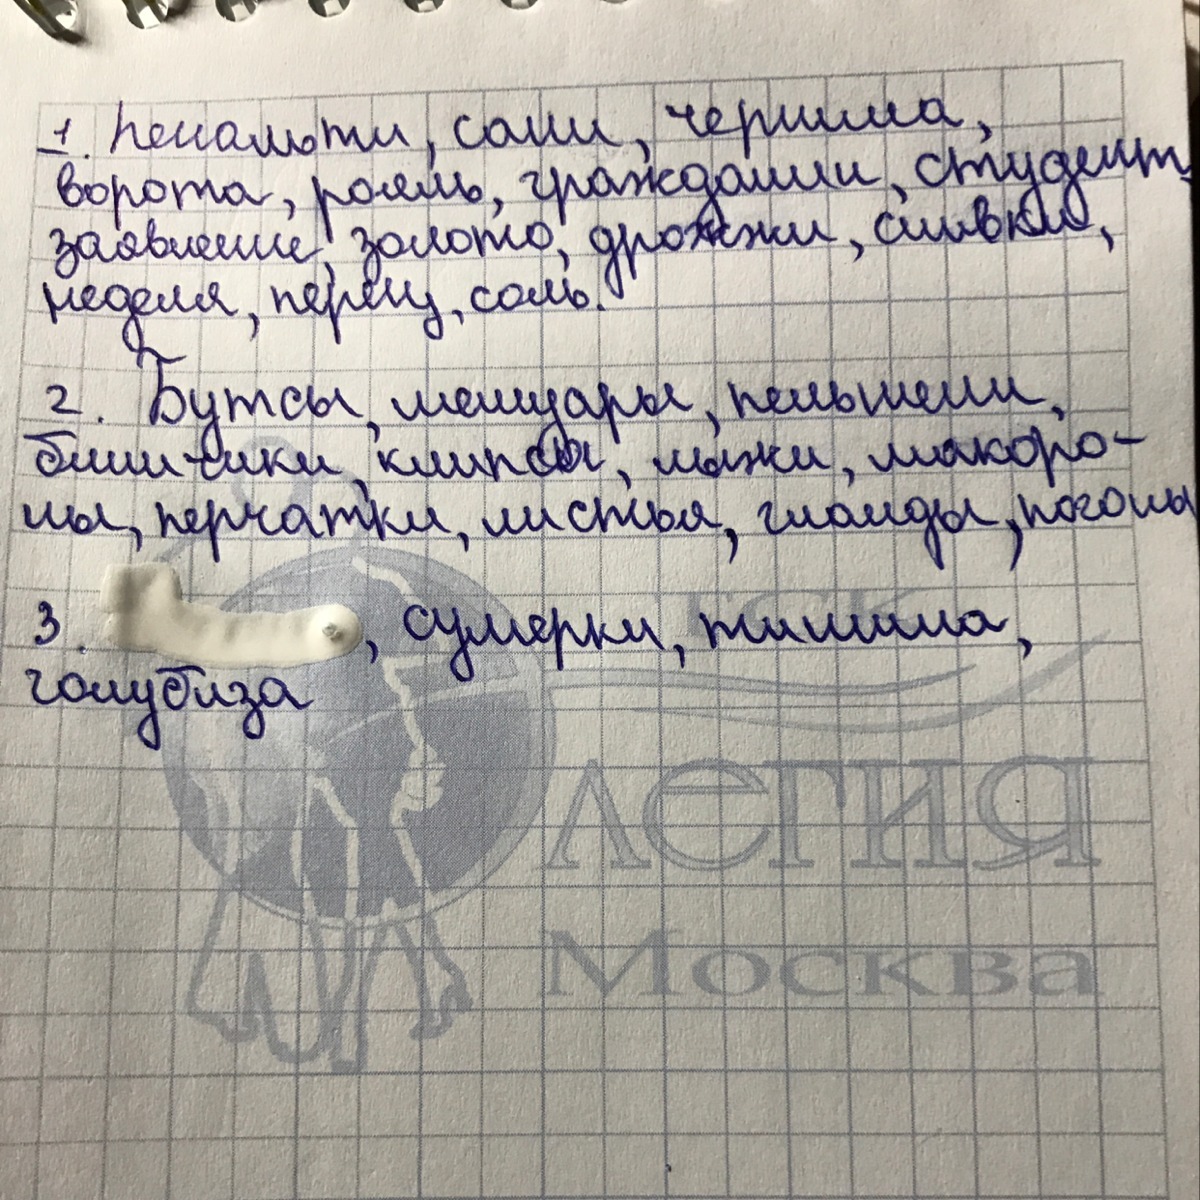 1. Пенальти, сани, чернила,
ворота, рояль, граждании, студент,
заявление, золото, дрожжи, сливки,
неделя, перец, соль.
2. Бутсы, мемуары, пельмени,
блинчики, клипсы, лыжи, макоро-
ны, перчатки, листья, гланды, погоны
3. , сумерки, тишина,
голубиза
ГСК
ЛЕГИЯ
Москва